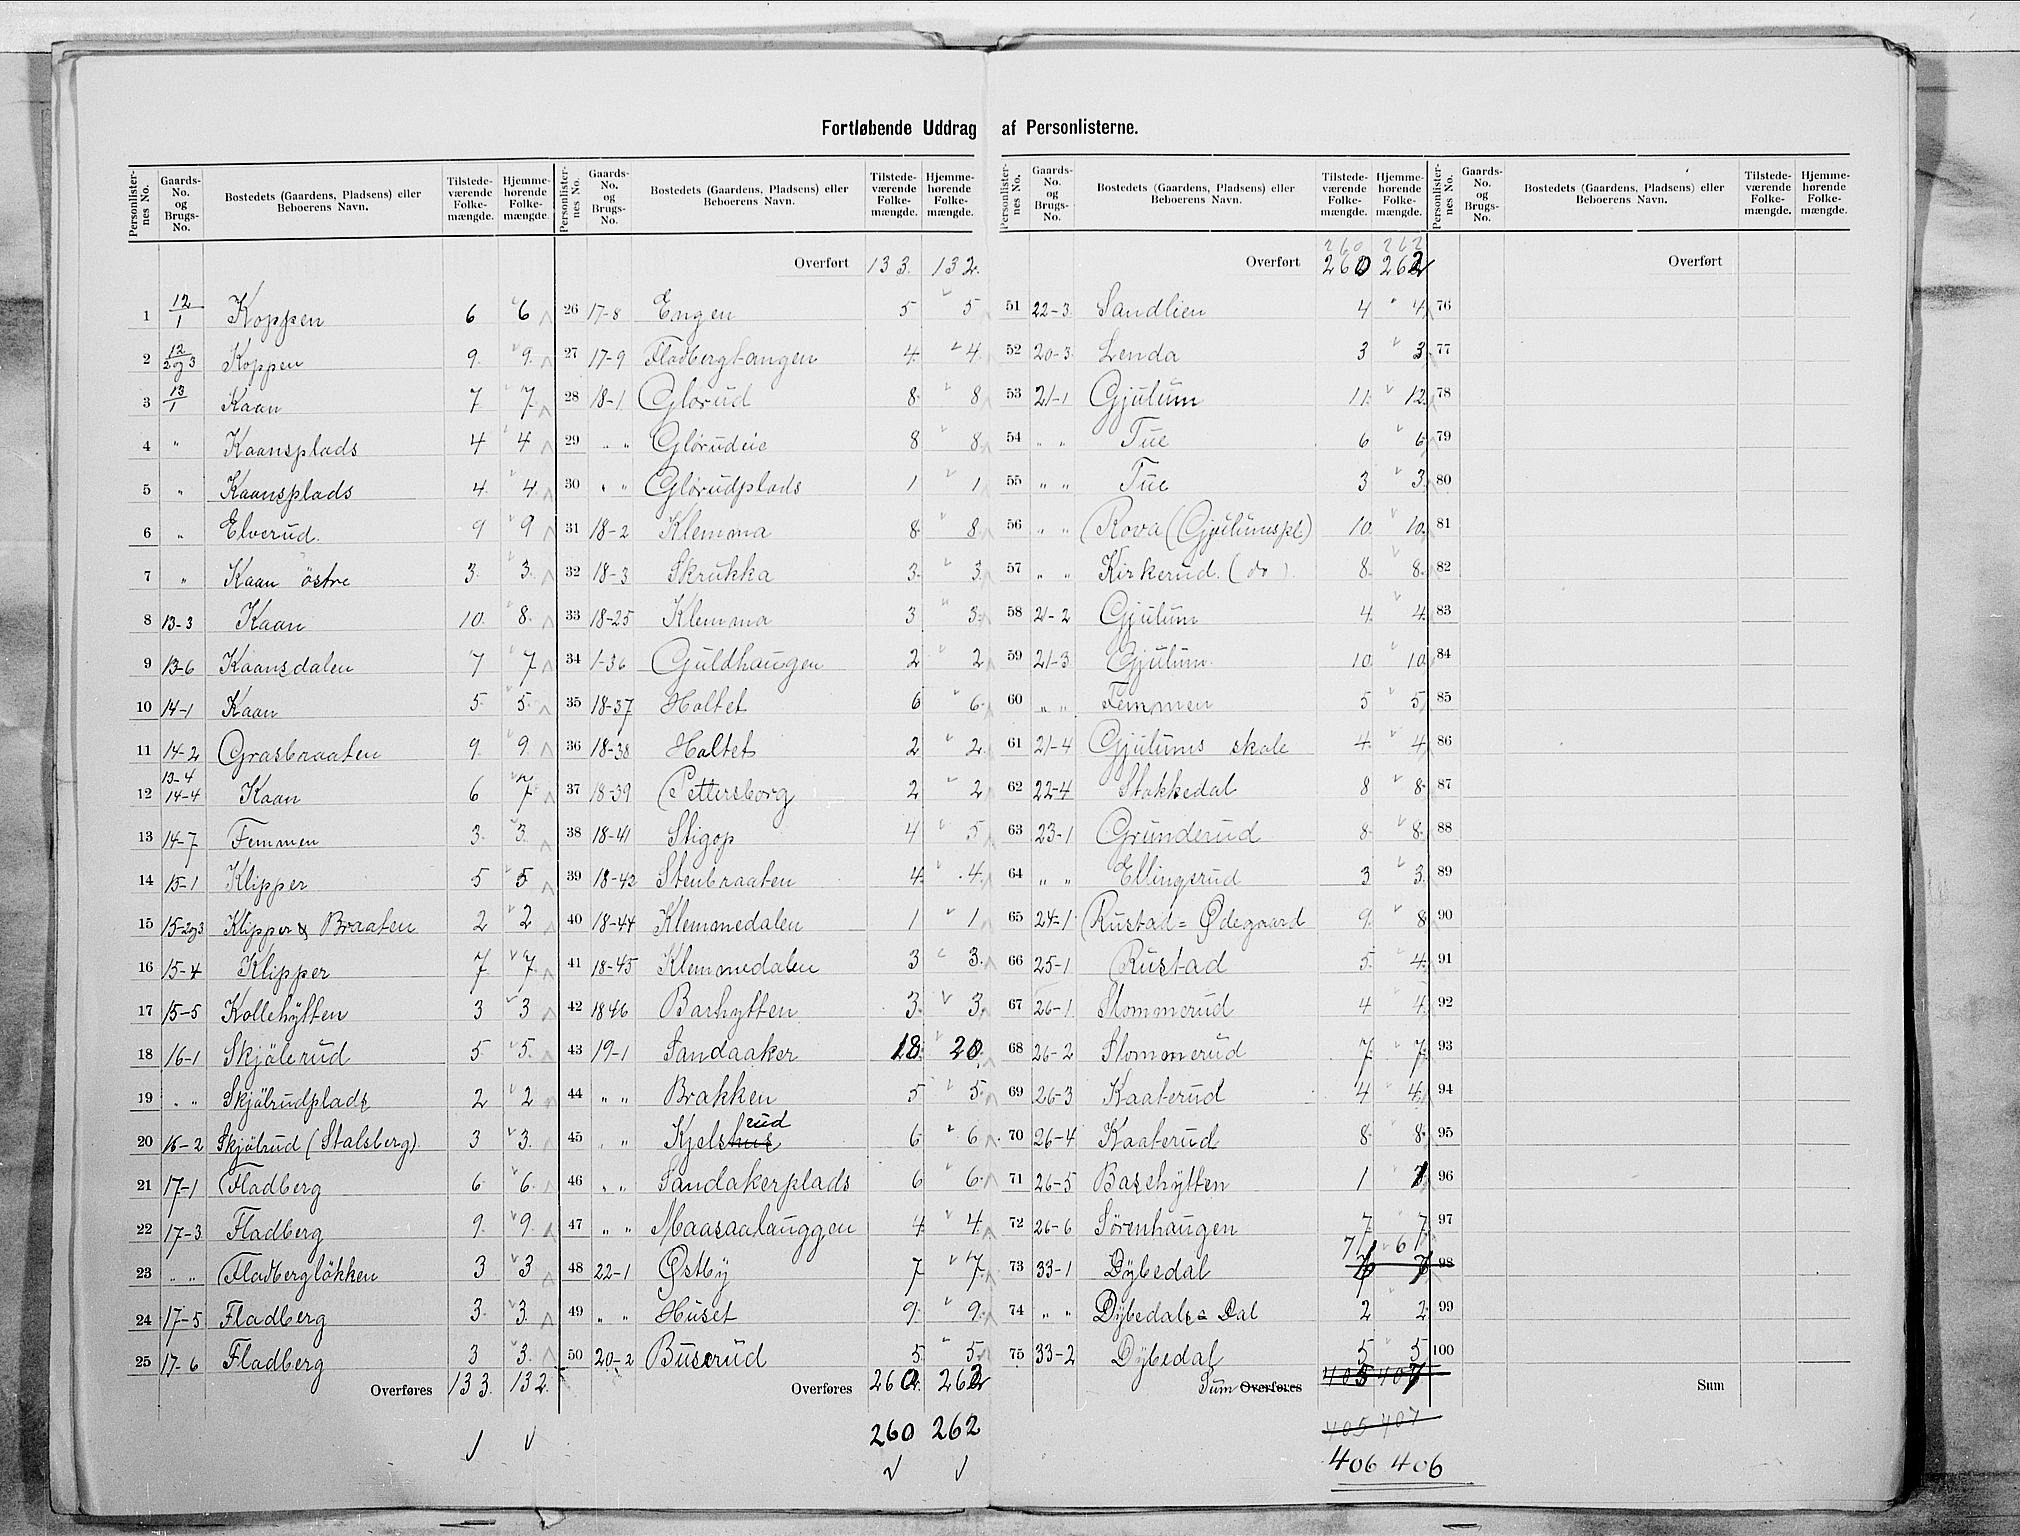 Fortløbende Uddrag af Personlisterne.
Personlisternes No. | Gaards-No. og Brugs-No. | Bostedets (Gaardens, Pladsens) eller Beboerens Navn. | Tilstedeværende Folkemængde. | Hjemmehørende Folkemængde.
1 12/1 Koppen 6 6
2 12/2og3 Koppen 9. 9.
3 13/1 Kaan 7 7.
4 " Kaansplads 4 4
5 " Kaansplads 4. 4.
6 " Elverud. 9 9
7 " Kaan östre 3. 3.
8 13-3 Kaan 10. 8.
9 13-6 Kaansdalen 7 7
10 14-1 Kaan 5. 5.
11 14-2 Grasbraaten 9. 9
12 13-4 14-4 Kaan 6 7
13 14-7 Femmen 3. 3.
14 15-1 Klipper 5 5
15 15-2og3 Klipper & Braaten 2 2
16 15-4 Klipper 7 7.
17 15-5 Kollehÿtten 3 3
18 16-1 Skjölerud 5 5.
19 " " Skjölrudplads 2 2
20 16-2 Skjölrud (Stalsberg). 3 3.
21 17-1 Fladberg 6. 6.
22 17-3 Fladberg 9. 9.
23 " " Fladberglökken 3 3
24 17-5 Fladberg 3. 3.
25 17-6 Fladberg 3 3.
Overføres 133. 132.
Personlisternes No. | Gaards-No. og Brugs-No. | Bostedets (Gaardens, Pladsens) eller Beboerens Navn. | Tilstedeværende Folkemængde. | Hjemmehørende Folkemængde.
Overført 133. 132.
26 17-8 Engen 5 5
27 17-9 Fladbergtangen 4. 4.
28 18-1 Glørud 8. 8
29 " " Glørudeie 8 8.
30 " " Glørudplads 1 1
31 18-2 Klemma 8. 8.
32 18-3 Skrukka 3. 3.
33 18-25 Klemma 3 3.
34 1-36 Guldhaugen 2 2
35 18-37 Holtet 6 6.
36 18-38 Holtet 2 2.
37 18-39 Pettersborg 2 2
38 18-41 Stigop 4 5
39 18-42 Stenbraaten 4. 4.
40 18-44 Klemmedalen 1 1
41 18-45 Klemmedalen 3 3.
42 1846 Barhytten 3. 3.
43 19-1 Sandaaker 18. 20.
44 " " Brakken 5 5.
45 " " Kjelshus rud 6 6
46 " " Sandakerplads 6 6.
47 " " 4. 4.
48 22-1 Østbÿ 7 7.
49 " " Huset 9. 9.
50 20-2 Buserud 5. 5.
Overføres 260 262
260 262
Personlisternes No. | Gaards-No. og Brugs-No. | Bostedets (Gaardens, Pladsens) eller Beboerens Navn. | Tilstedeværende Folkemængde. | Hjemmehørende Folkemængde.
260 262
Overført 260 262
51 22-3. Sandlien 4 4
52 20-3. Lenda 3 3
53 21-1 Gjulum 11. 12.
54 " " Tue 6 6
55 " " Tue 3 3.
56 " " Rova (Gjulumspl) 10. 10.
57 " " Kirkerud. (do). 8. 8.
58 21-2 Gjulum 4. 4.
59 21-3. Gjulum. 10. 10.
60 " " Femmen 5 5
61 21-4 Gjulums skole 4. 4
62 22-4 Stokkedal 8 8.
63 23-1 Grunderud 8. 8.
64 " " Ellingsrud 3 3.
65 24-1 Rustad = Ødegaard 9. 8
66 25-1 Rustad 5. 4.
67 26-1 Slommerud 4 4.
68 26-2 Slommerud 7. 7.
69 26-3 Kaaterud 4 4.
70 26-4 Kaaterud 8. 8.
71 26-5 Basehÿtten 1 1
72 26-6 Sörenhaugen 7 7.
73 33-1 Dÿbedal 7 6
74 " " Dÿbedals = Dal 2 2.
75 33-2 Dÿbedal 5 5
Sum Overføres 405 407
405 407
406 406
Personlisternes No. | Gaards-No. og Brugs-No. | Bostedets (Gaardens, Pladsens) eller Beboerens Navn. | Tilstedeværende Folkemængde. | Hjemmehørende Folkemængde.
Overført
76
77
78
79
80
81
82
83
84
85
86
87
88
89
90
91
92
93
94
95
96
97
98
99
100
Sum